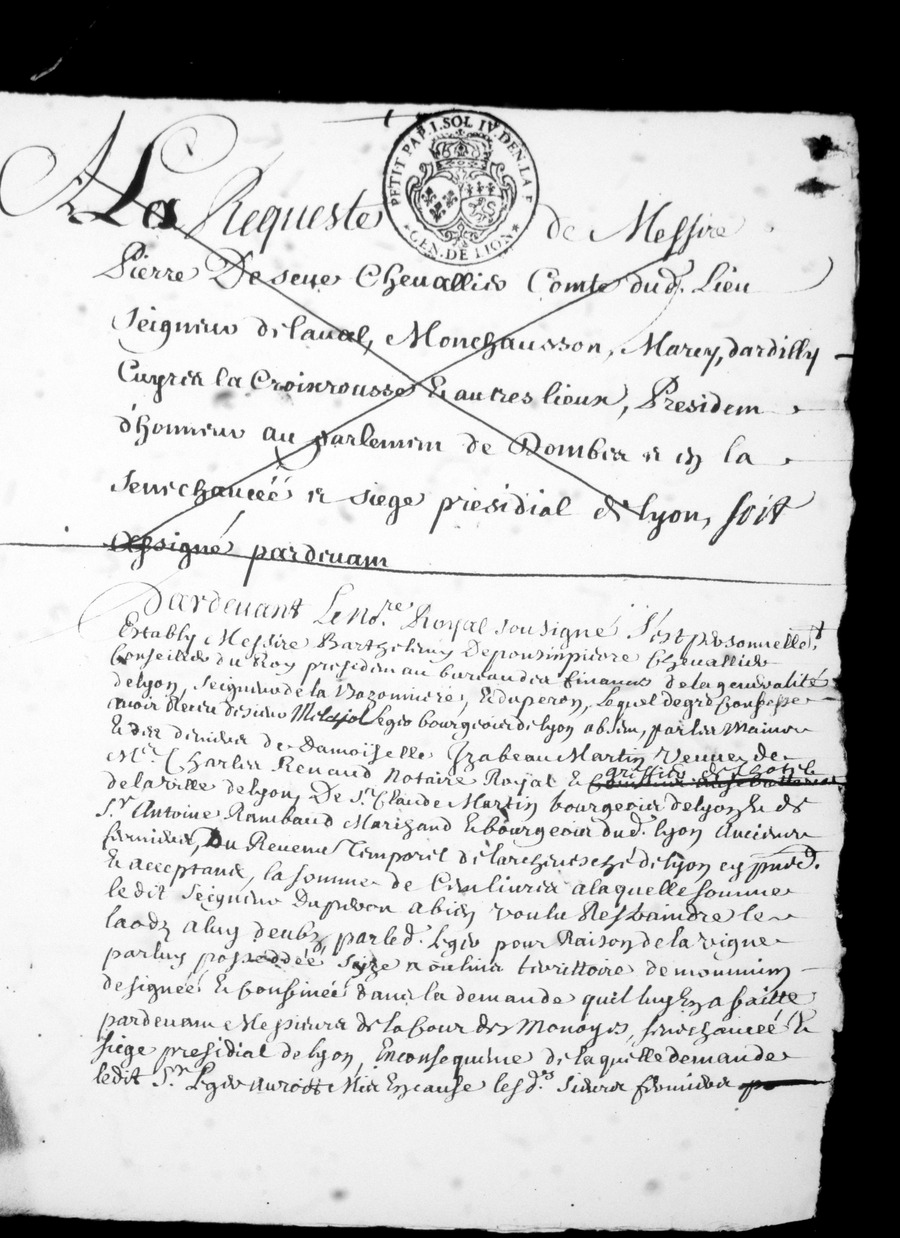 PETIT PAP. I. SOL IV. DEN. LA F
GEN. DE LION
A La Requeste de Messire
Pierre De seve Chevallier Comte dud. Lieu
Seigneur delaval, Monchausson, Marcy, dardilly
Cuyres la Croixrousse & autres lieux, Presidem
d'honneur au parlemem de Dombes & en la
senechaucéé & siege presidial de lyon, soit
assigné pardevam
Pardevant Le No.re Royal sousigné s'est personnellet
Estably Messire Barthelemy Deponsinpierre Chevallier
Conseiller du Roy presidem au bureau des finances de la generalité
de lyon, seigneur de la et duperon, Lequel degré Confesse
avoir Receu de sieur Leger bourgeois de lyon absem, par les Mains
& des deniers de Damoiselle Izabeau Martin Veuve de
Mr. Charles Renaud Notaire Royal & greffier de l'hotel
de la ville de lyon, De Sr. Claude Martin bourgeois de lyon & de
Sr. Antoine Rambaud Marchand & bourgeois dud. lyon anciens
fermiers, Du Revenu Temporel de l'archevesché de lyon cy pnt.
& acceptans, la somme de Cens livres a laquelle somme
ledit Seigneur Duperon a bien voulu Restraindre les
laods a luy deubz, par led. Leger pour Raison de la vigne
par luy possedéé size a oulins territtoire de
designéé & Confinéé dans la demande quil luy En a faitte
pardevam Messieurs de la Cour des Monoyes, senechauceé &
siege presidial de lyon, En consequence de laquelle demande
ledit Sr. Leger auroit Mis En cause lesd.s sieurs fermiers